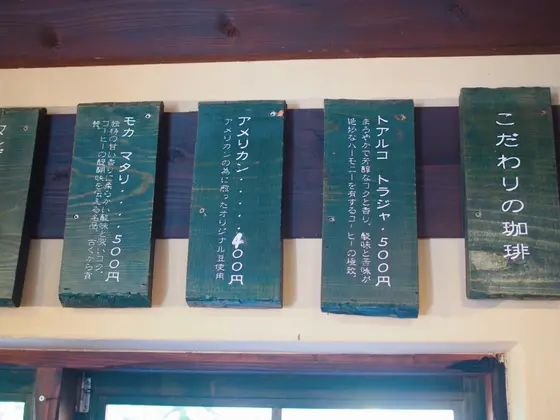 こだわりの珈琲
トアルコ トラジャ・500円
まろやかで芳醇なコクと香り。酸味と苦味が
絶妙なハーモニーを有するコーヒーの極致。
アメリカン・・・・400円
アメリカンの為に煎ったオリジナル豆使用
モカ マタリ・・・・500円
独特の甘い香りに柔らかい酸味と深いコク。
コーヒーの醍醐味を伝える名価。古くから貴